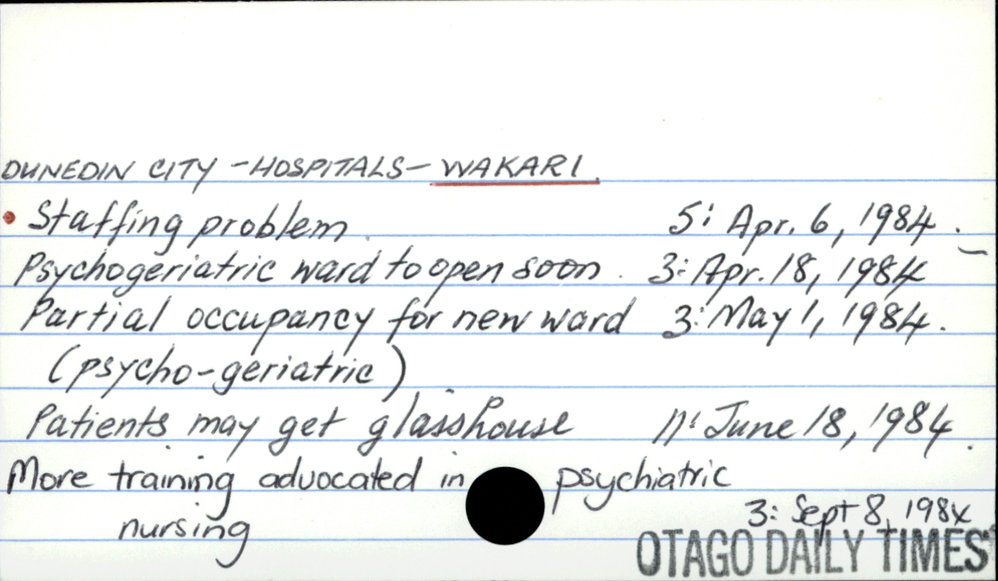 DUNEDIN CITY - HOSPITALS - WAKARI.
Staffing problem. 5: Apr. 6, 1984.
Psychogeriatric ward to open soon. 3: Apr. 18, 1984
Partial occupancy for new ward 3: May 1, 1984.
(psycho-geriatric)
Patients may get glasshouse 11: June 18, 1984.
More training advocated in psychiatric
nursing 3: Sept 8, 1984
OTAGO DAILY TIMES